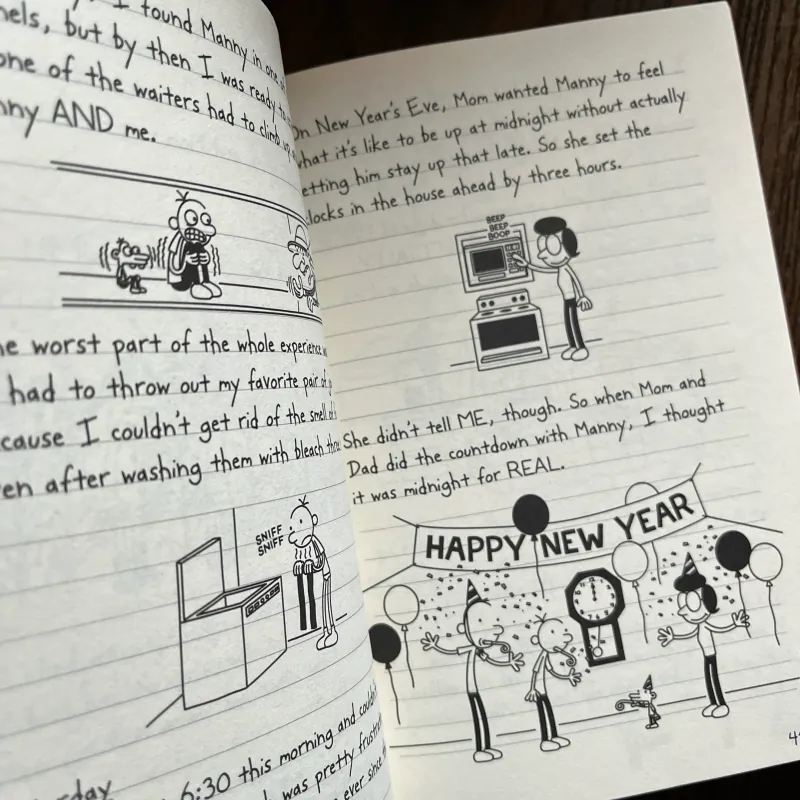 I found Manny in one
but by then I was ready to
one of the waiters had to climb up
AND me.
worst part of the whole experience
had to throw out my favorite pair of
I couldn't get rid of the smell of
after washing them with bleach
SNIFF
SNIFF
6:30 this morning and
was pretty
ever since
On New Year's Eve, Mom wanted Manny to feel
what it's like to be up at midnight without actually
letting him stay up that late. So she set the
clocks in the house ahead by three hours.
BEEP
BEEP
BOOP
She didn't tell ME, though. So when Mom and
Dad did the countdown with Manny, I thought
it was midnight for REAL.
HAPPY NEW YEAR